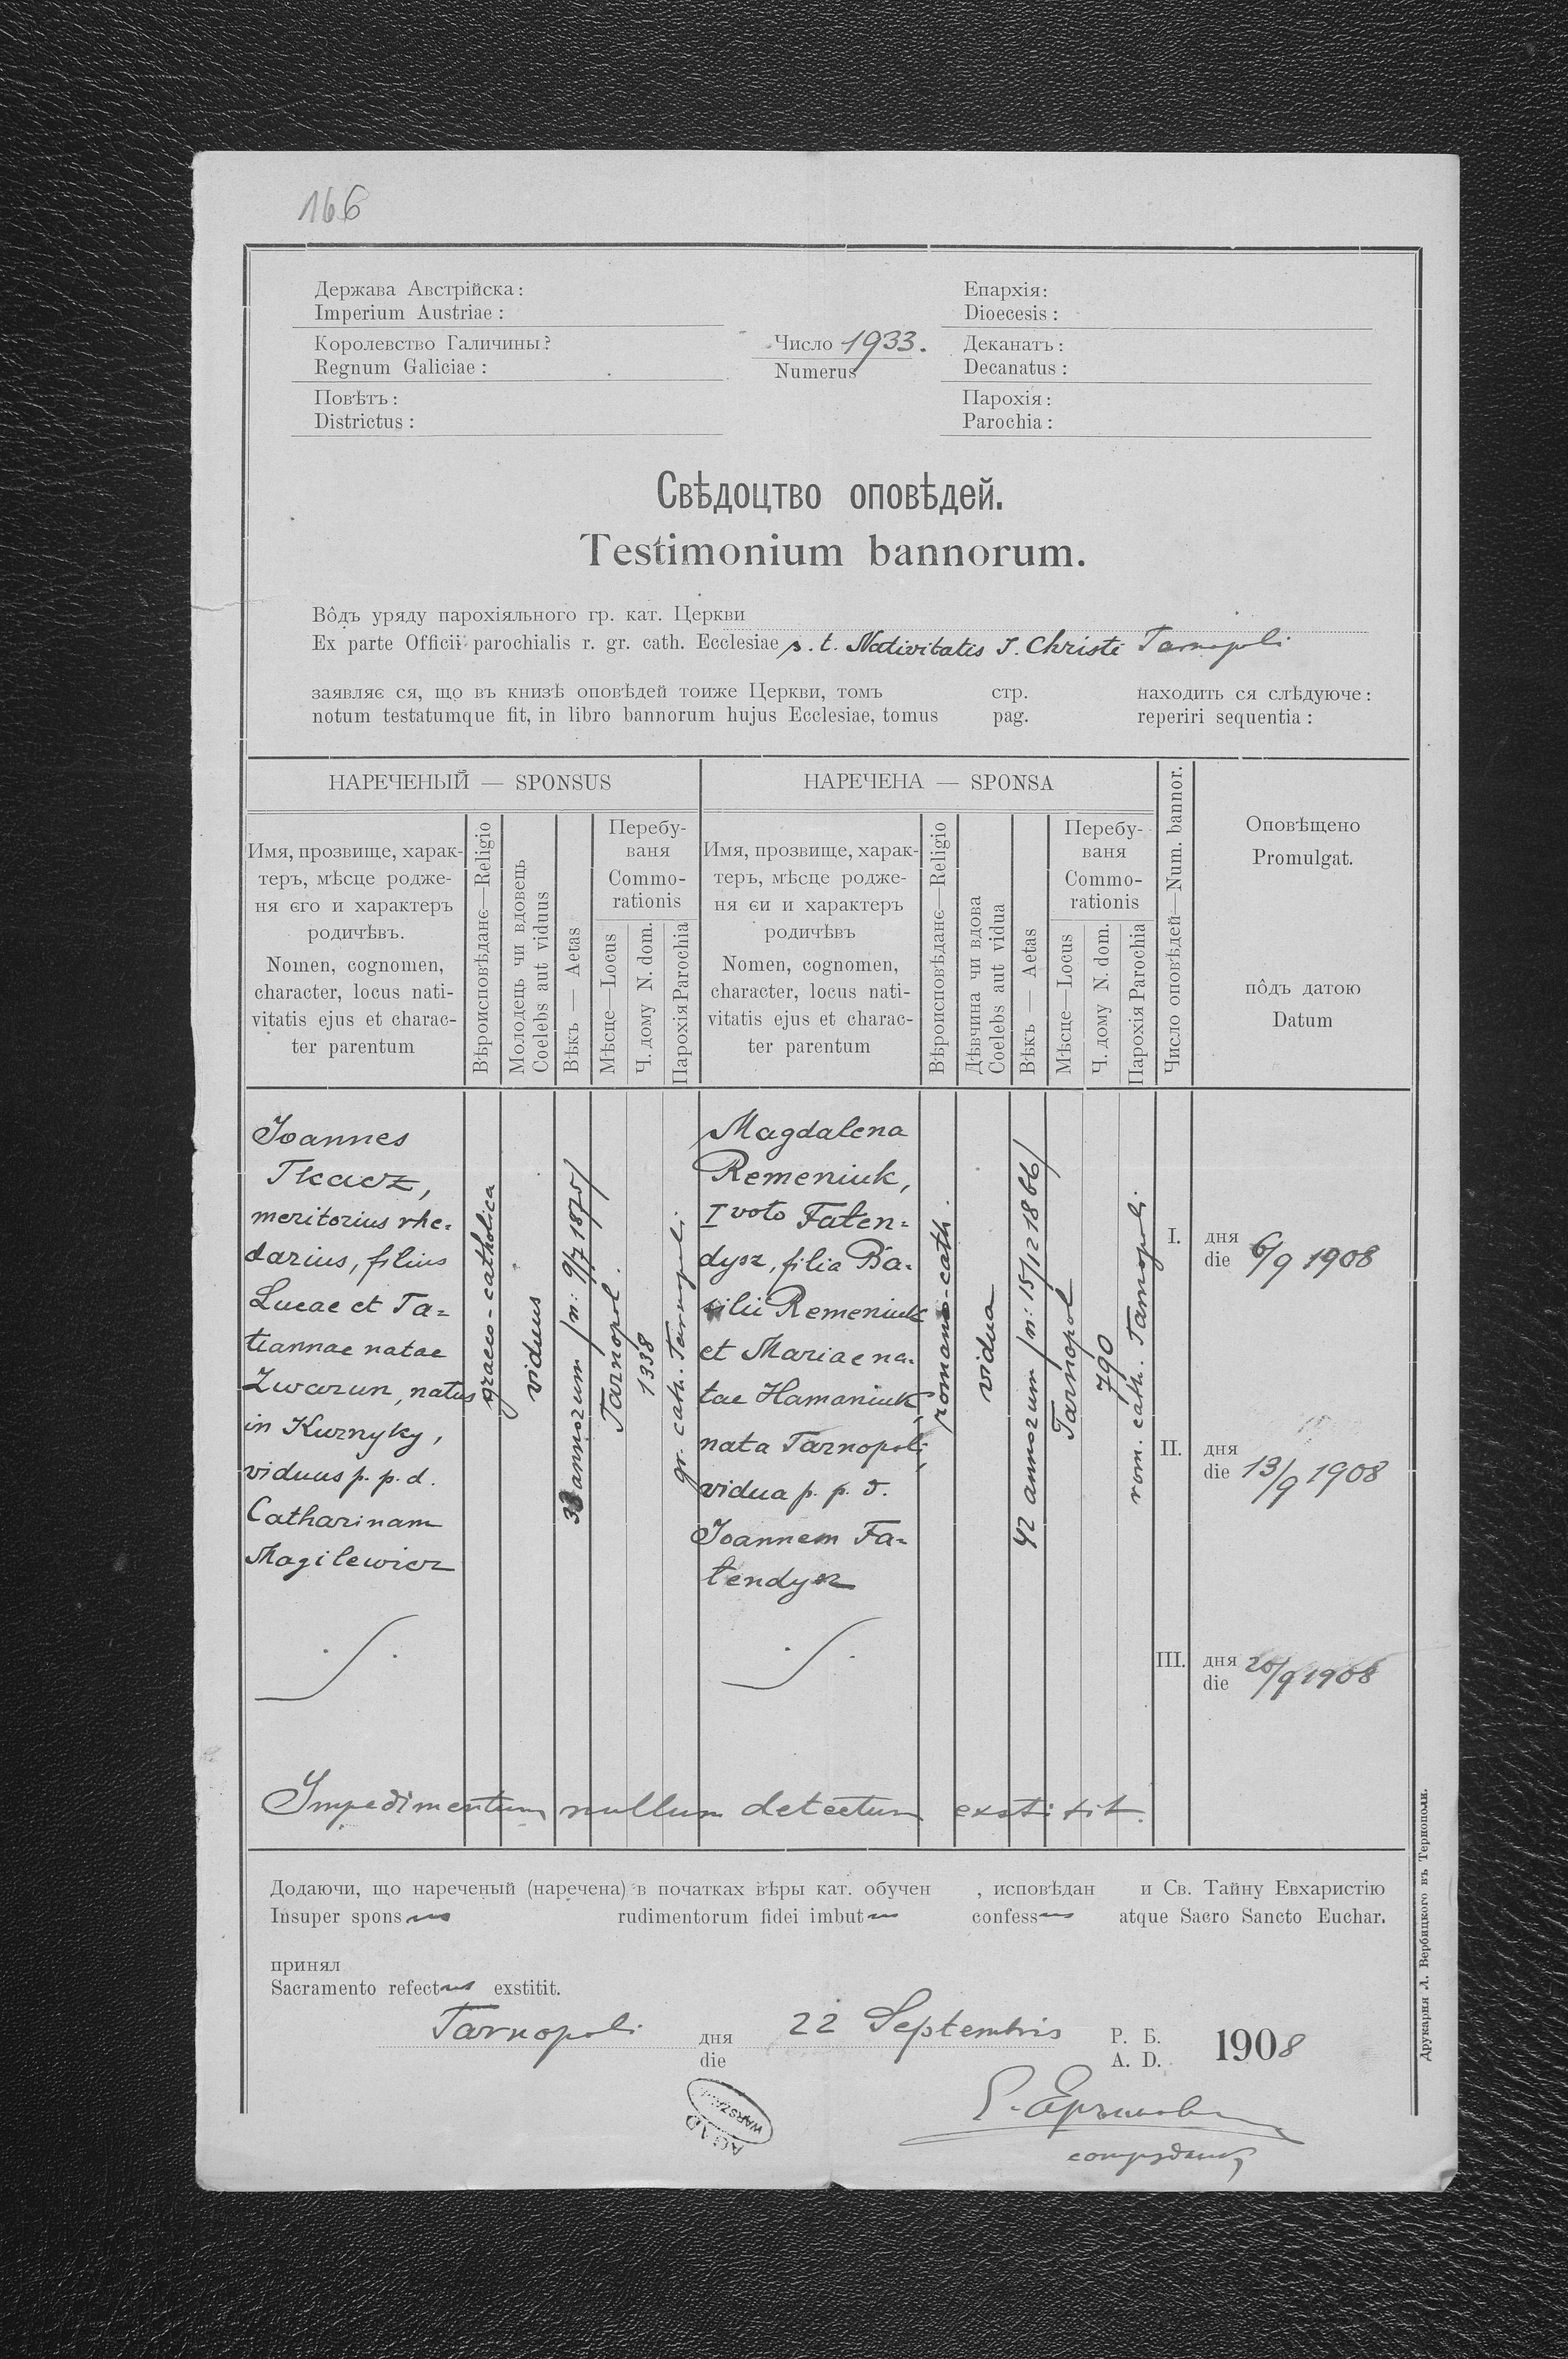 166
Держава Австрійска:
Imperium Austriae :
Королевство Галичины?
Regnum Galiciae :
Повѣтъ :
Districtus :
Число 1933.
Numerus
Епархія:
Dioecesis :
Деканатъ :
Decanatus :
Парохія :
Parochia :
Свѣдоцтво оповѣдей.
Testimonium bannorum.
Вôдъ уряду парохіяльного гр. кат. Церкви
Ex parte Officii parochialis r. gr. cath. Ecclesiae s. t. Nativitatis J. Christi Tarnopoli
заявляє ся, що въ книзѣ оповѣдей тоиже Церкви, томъ стр. находить ся слѣдуюче :
notum testatumque fit, in libro bannorum hujus Ecclesiae, tomus pag. reperiri sequentia :
НАРЕЧЕНЫЙ — SPONSUS
Имя, прозвище, харак-
теръ, мѣсце родже-
ня єго и характеръ
родичѣвъ.
Nomen, cognomen,
character, locus nati-
vitatis ejus et charac-
ter parentum
Вѣроисповѣданє—Religio
Молодець чи вдовець
Coelebs aut viduus
Вѣкъ — Aetas
Перебу-
ваня
Commo-
rationis
Мѣсце—Locus
Ч. дому N. dom.
Парохія Parochia
НАРЕЧЕНА — SPONSA
Имя, прозвище, харак-
теръ, мѣсце родже-
ня єи и характеръ
родичѣвъ
Nomen, cognomen,
character, locus nati-
vitatis ejus et charac-
ter parentum
Вѣроисповѣданє—Religio
Дѣвчина чи вдова
Coelebs aut vidua
Вѣкъ — Aetas
Перебу-
ваня
Commo-
rationis
Мѣсце—Locus
Ч. дому N. dom.
Парохія Parochia
Число оповѣдей—Num. bannor.
Оповѣщено
Promulgat.
пôдъ датою
Datum
Joannes
Tkacz,
meritorius rhe=
darius, filius
Lucae et Ta=
tiannae natae
Zwarun, natus
in Kurnyky,
viduus p. p. d.
Catharinam
Magilewicz
graeco-catholica
viduus
33 annorum /n: 9/7 1875/
Tarnopol.
1338
gr. cath. Tarnopoli
Magdalena
Remeniuk,
I voto Faten=
dysz, filia Ba=
silii Remeniuk
et Mariae na=
tae Hamaniuk,
nata Tarnopoli,
vidua p. p. d.
Joannem Fa=
tendysz
romano-cath.
vidua
42 annorum /n: 15/12 1866/
Tarnopol
790
rom. cath. Tarnopoli.
I. дня
die 6/9 1908
II. дня
die 13/9 1908
III. дня
die 20/9 1908
Impedimentum nullum detectum exstitit.
Додаючи, що нареченый (наречена) в початках вѣры кат. обучен , исповѣдан и Св. Тайну Евхаристію
Insuper sponsus rudimentorum fidei imbutus confessus atque Sacro Sancto Euchar.
принял
Sacramento refectus exstitit.
Tarnopoli дня 22 Septembris Р. Б. 1908
die A. D.
сотрудник
AGAD
WARSZAWA
Друкарня Л. Вербицкого въ Тернополи.